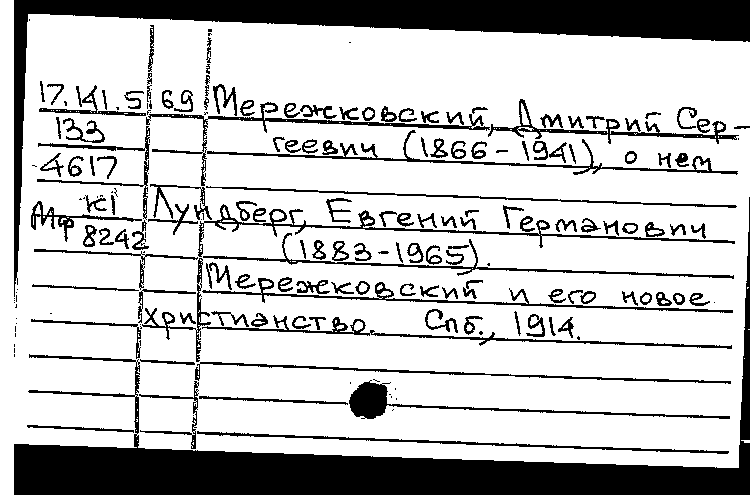 17.141.5 69 Мережковский, Дмитрий Сер-
133 геевич (1866-1941), о нем
4617
К1 Лундберг, Евгений Германович
Мф 8242 (1883-1965).
Мережковский и его новое
христианство. Спб., 1914.